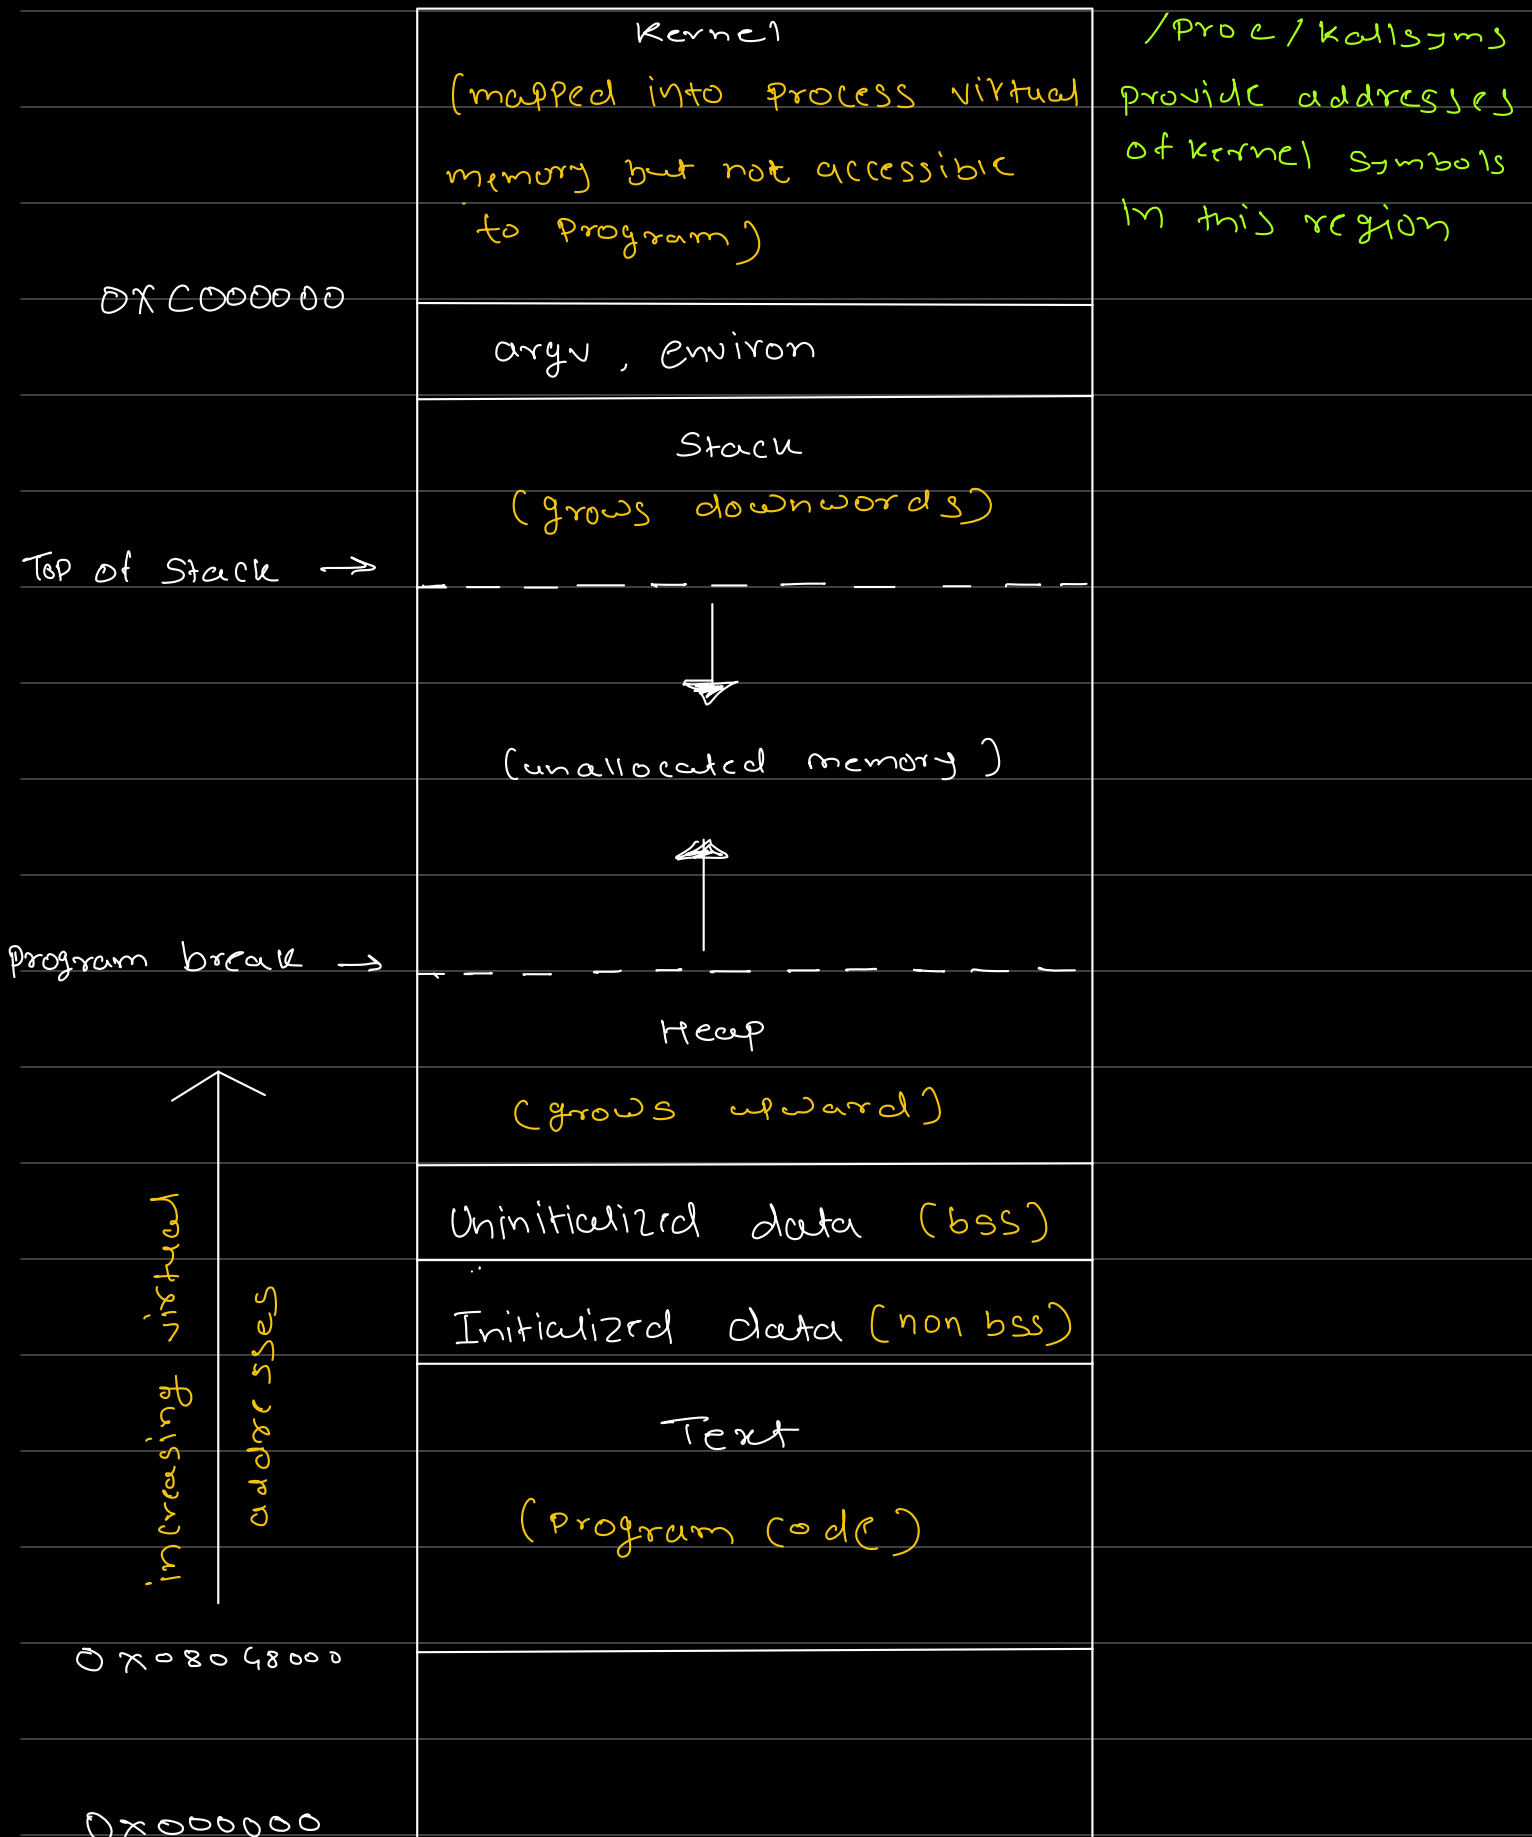 Kernel
(mapped into process virtual
memory but not accessible
to program)
/proc/kallsyms
provide addresses
of kernel symbols
In this region
0xC000000
argv, environ
Stack
(grows downwords)
Top of stack →
(unallocated memory)
program break →
Heap
(grows upward)
Uninitialized data (bss)
Initialized data (non bss)
Text
(program code)
increasing virtual
addresses
0x08048000
0x000000